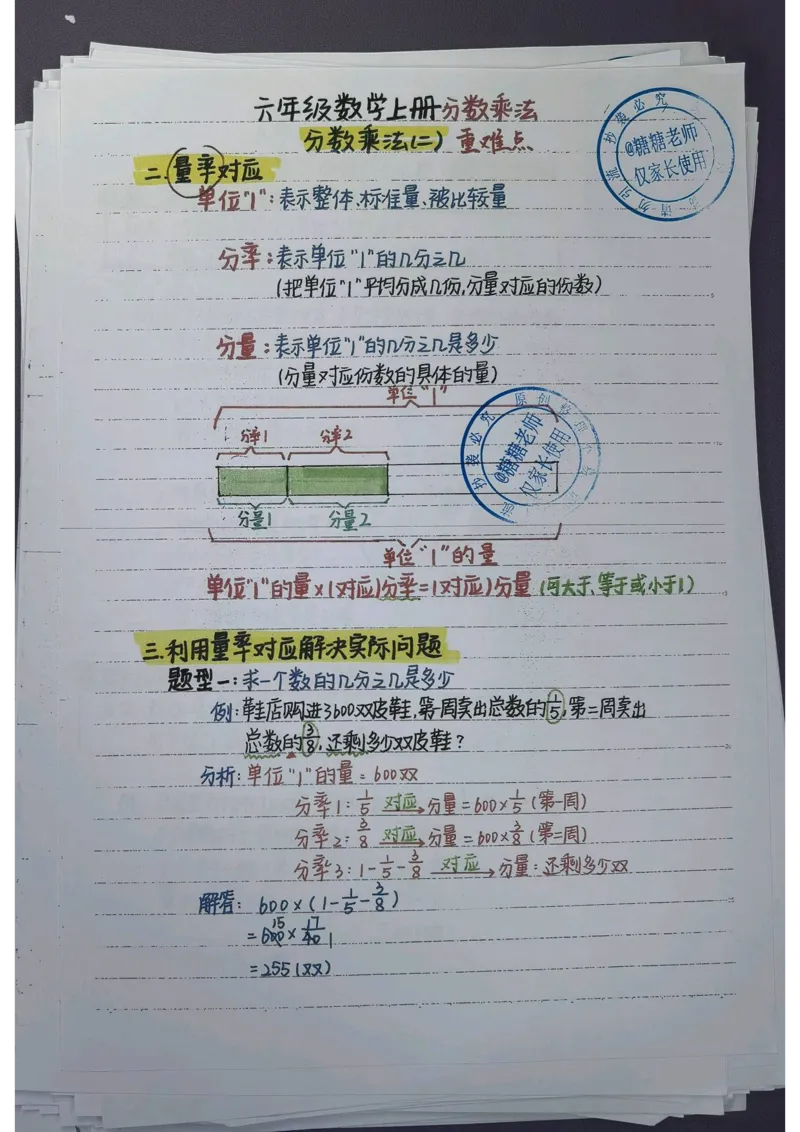 六年级数学上册分数乘法
分数乘法(二) 重难点
二.量率对应
单位"1":表示整体、标准量、被比较量
分率:表示单位"1"的几分之几
(把单位"1"平均分成几份,分量对应的份数)
分量:表示单位"1"的几分之几是多少
(分量对应份数的具体的量)
单位"1"
分率1 分率2
分量1 分量2
单位"1"的量
单位"1"的量×(对应)分率=(对应)分量 (可大于、等于或小于1)
三.利用量率对应解决实际问题
题型一:求一个数的几分之几是多少
例:鞋店购进3600双皮鞋,第一周卖出总数的1/5,第二周卖出
总数的3/8,还剩多少双皮鞋?
分析:单位"1"的量=600双
分率1:1/5 对应→分量=600×1/5(第一周)
分率2:3/8 对应→分量=600×3/8(第二周)
分率3:1-1/5-3/8 对应→分量:还剩多少双
解答:600×(1-1/5-3/8)
=600×17/40 15 1
=255(双)
抄袭必究
@糖糖老师
仅家长使用
请勿引流
原创
抄袭必究
@糖糖老师
仅家长使用